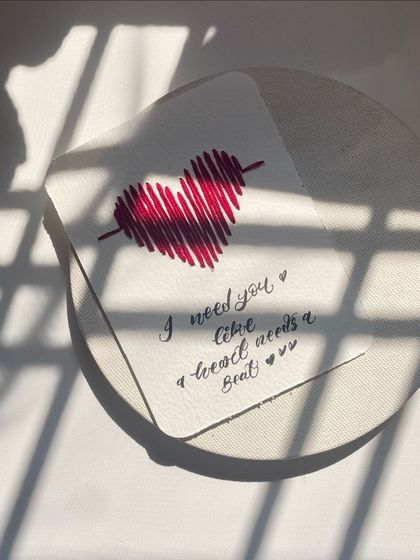 I need you ♥
like
a heart needs a
Beat ♥♥♥